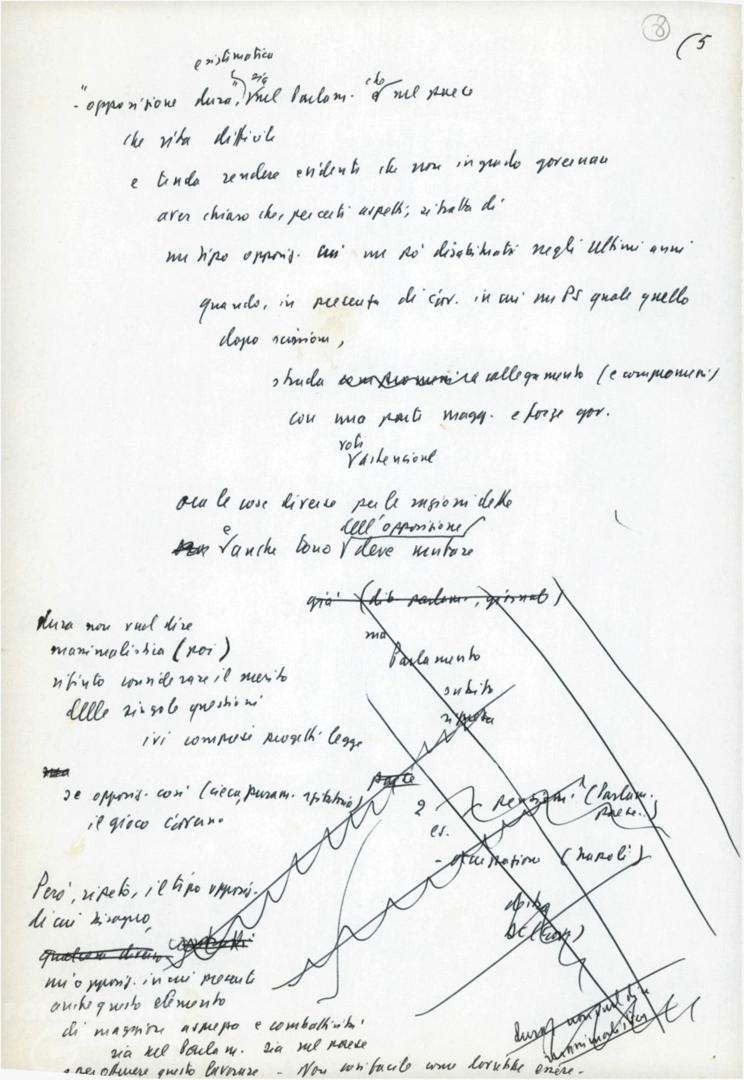 8 (5
e sistematica
sia che
- "opposizione dura", nel Parlam. e nel paese
che vita difficile
e tenda rendere evidente che non in grado governare
aver chiaro che, per certi aspetti, si tratta di
un tipo opposiz. cui un po' disabituati negli ultimi anni
quando, in presenza di Gov. in cui un PS quale quello
dopo scissione,
strada collegamento (e compromessi)
con una parte magg. e forze gov.
voti
astensione
ora le cose diverse per le ragioni dette
e dell'opposizione
anche tono deve mutare
già (dib. parlam., giornali)
ma
Parlamento
subito
ripresa
dura non vuol dire
massimalistica (poi)
rifiuto considerare il merito
delle singole questioni
ivi compresi progetti legge
parte
se opposiz. così (cieca, puram. agitatoria)
il gioco
2 pensioni (Parlam.
paese..)
es.
(Napoli)
Però, ripeto, il tipo opposiz.
di cui bisogno,
qualcuno diceva
un'opposiz. in cui presente
anche questo elemento
di maggiore asprezza e combattività
sia nel Parlam. sia nel paese
dura non vuol dire
massimalistica
e per ottenere questo lavorare - Non così facile come dovrebbe essere -